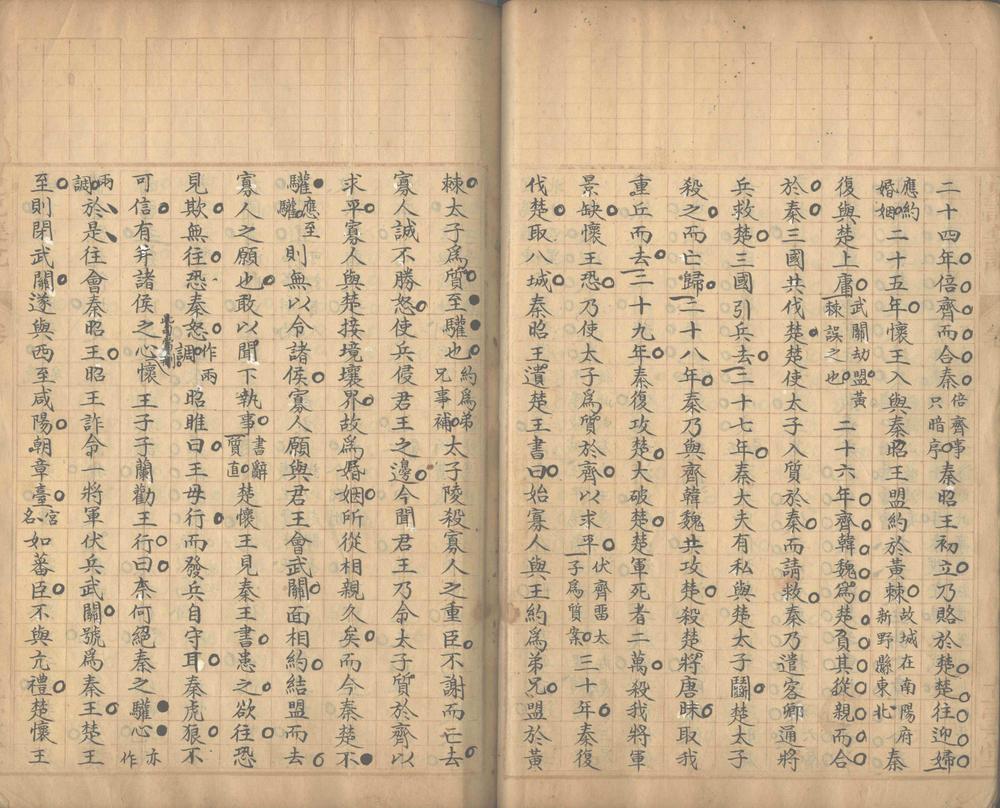 二十四年倍齊而合秦倍齊事只暗序秦昭王初立乃賂於楚楚往迎婦
應約婚姻二十五年懷王入與秦昭王盟約於黃棘故城在南陽府新野縣東北秦
復與楚上庸武關劫盟黃棘誤之也二十六年齊韓魏爲楚負其從親而合
於秦三國共伐楚楚使太子入質於秦而請救秦乃遣客卿通將
兵救楚三國引兵去二十七年秦大夫有私與楚太子鬭楚太子
殺之而亡歸二十八年秦乃與齊韓魏共攻楚殺楚將唐昧取我
重丘而去二十九年秦復攻楚大破楚楚軍死者二萬殺我將軍
景缺懷王恐乃使太子爲質於齊以求平伏齊雷太子爲質案三十年秦復
伐楚取八城秦昭王遺楚王書曰始寡人與王約爲弟兄盟於黃
棘太子爲質至驩也約爲弟兄事補太子陵殺寡人之重臣不謝而亡去
寡人誠不勝怒使兵侵君王之邊今聞君王乃令太子質於齊以
求平寡人與楚接境壤界故爲婚姻所從相親久矣而今秦楚不
驩應至驩則無以令諸侯寡人願與君王會武關面相約結盟而去
寡人之願也敢以聞下執事書辭質直楚懷王見秦王書患之欲往恐
見欺無往恐秦怒作兩調昭睢曰王毋行而發兵自守耳秦虎狼不
可信有并諸侯之心懷王子子蘭勸王行曰柰何絕秦之驩心亦作
兩調於是往會秦昭王昭王詐令一將軍伏兵武關號爲秦王楚王
至則閉武關遂與西至咸陽朝章臺宮名如蕃臣不與亢禮楚懷王